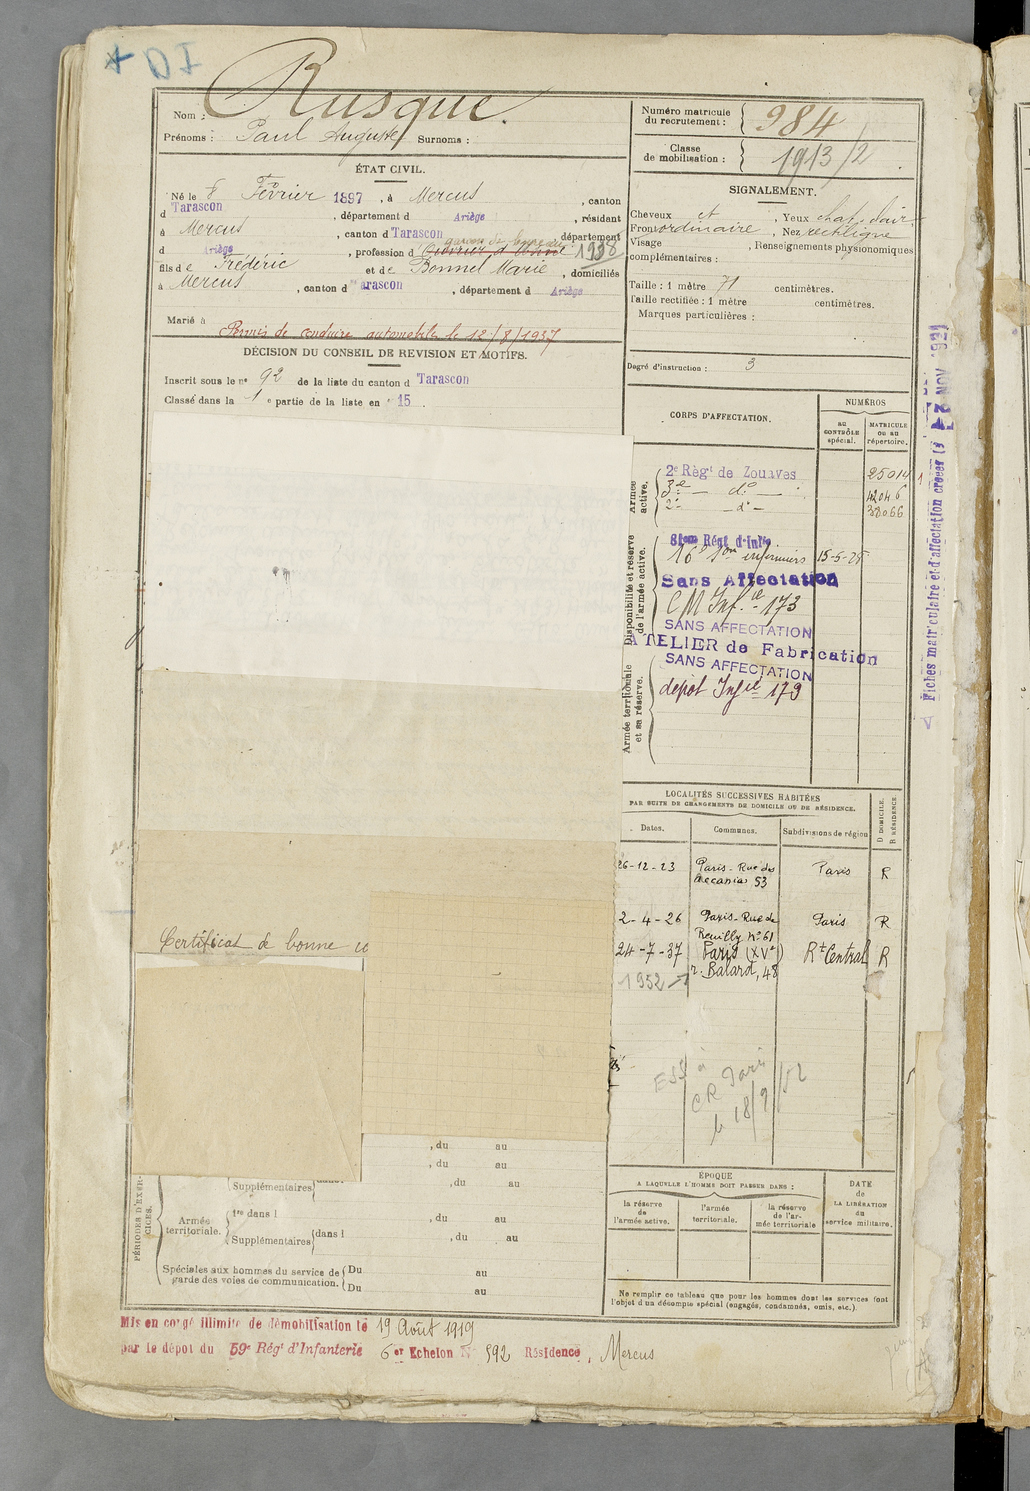 DI
Nom : Rusque
Prénoms : Paul Auguste Surnoms :
Numéro matricule
du recrutement : 984
Classe
de mobilisation : 1913/2
ÉTAT CIVIL.
Né le 8 Février 1897, à Mercus, canton
d Tarascon, département d Ariège, résidant
à Mercus, canton d Tarascon département
d Ariège, profession d 1938
fils de Frédéric et de Bonnel Marie, domiciliés
à Mercus, canton d arascon, département d Ariège
Marié à
Permis de conduire automobile le 12/8/1937
SIGNALEMENT.
Cheveux ct, Yeux chat. clair
Front ordinaire, Nez rectiligne
Visage , Renseignements physionomiques
complémentaires :
Taille : 1 mètre 71 centimètres.
Taille rectifiée : 1 mètre centimètres.
Marques particulières :
Degré d'instruction : 3
DÉCISION DU CONSEIL DE REVISION ET MOTIFS.
Inscrit sous le n° 92 de la liste du canton d Tarascon
Classé dans la 1 e partie de la liste en 15.
CORPS D'AFFECTATION.
NUMÉROS
au
CONTRÔLE
spécial.
MATRICULE
ou au
répertoire.
Armée
active.
2e Régt de Zouaves 25014
3e — do — 
2e — do —
38066
Disponibilité et réserve
de l'armée active.
81eme Régt d'Infie
16e Son infirmiers 15-5-28
Sans Affectation
CM Inf.ie 173
SANS AFFECTATION
ATELIER de Fabrication
SANS AFFECTATION
Armée territoriale
et sa réserve.
dépôt Infie 179
Fiches matriculaire et d'affectation créées
NOV 1921
LOCALITÉS SUCCESSIVES HABITÉES
PAR SUITE DE CHANGEMENTS DE DOMICILE OU DE RÉSIDENCE.
Dates. Communes. Subdivisions de région D DOMICILE. R RÉSIDENCE
26-12-23 Paris - Rue des 53 Paris R
2-4-26 Paris - Rue de Reuilly N° 61 Paris R
24-7-37 Paris (XVe) r. Balard, 48 Rt Central R
1952
CR Paris
le 18/9/52
Certificat de bonne co
, du au
, du au
Supplémentaires , du au
PÉRIODES D'EXERCICES.
Armée
territoriale.
1re dans l , du au
Supplémentaires dans l , du au
Spéciales aux hommes du service de
garde des voies de communication.
Du au
Du au
ÉPOQUE
A LAQUELLE L'HOMME DOIT PASSER DANS :
la réserve
de
l'armée active.
l'armée
territoriale.
la réserve
de l'ar-
mée territoriale
DATE
de
LA LIBÉRATION
du
service militaire.
Ne remplir ce tableau que pour les hommes dont les services font
l'objet d'un décompte spécial (engagés, condamnés, omis, etc.).
Mis en congé illimité de démobilisation le 19 Août 1919
par le dépôt du 59e Régt d'Infanterie 6er Echelon N° 592 Résidence, Mercus